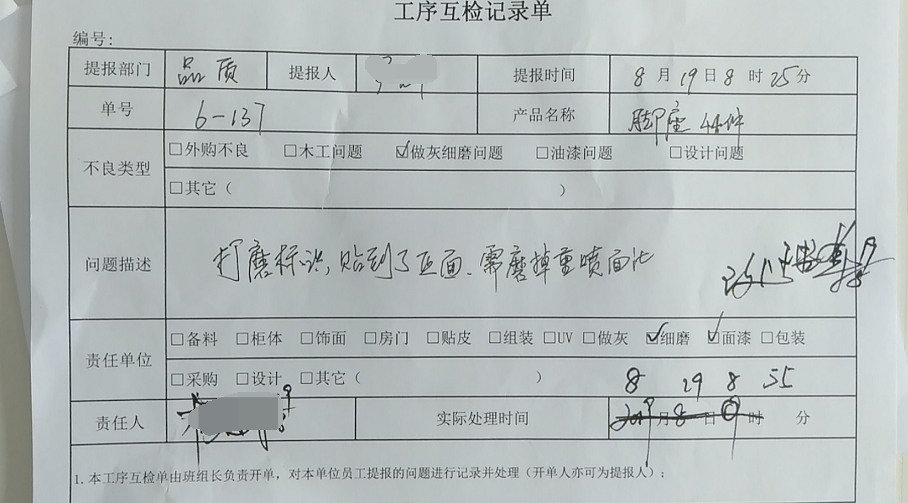 工序互检记录单
编号:
提报部门 品质 提报人 提报时间 8月19日8时25分
单号 6-137 产品名称 脚座 44件
不良类型 □外购不良 □木工问题 ☑做灰细磨问题 □油漆问题 □设计问题
□其它( )
问题描述 打磨标识,贴到了正面、需磨掉重喷面
责任单位 □备料 □柜体 □饰面 □房门 □贴皮 □组装 □UV □做灰 ☑细磨 ☑面漆 □包装
□采购 □设计 □其它( )
8 29 8 55
责任人 实际处理时间 月8日 时 分
1.本工序互检单由班组长负责开单,对本单位员工提报的问题进行记录并处理(开单人亦可为提报人);